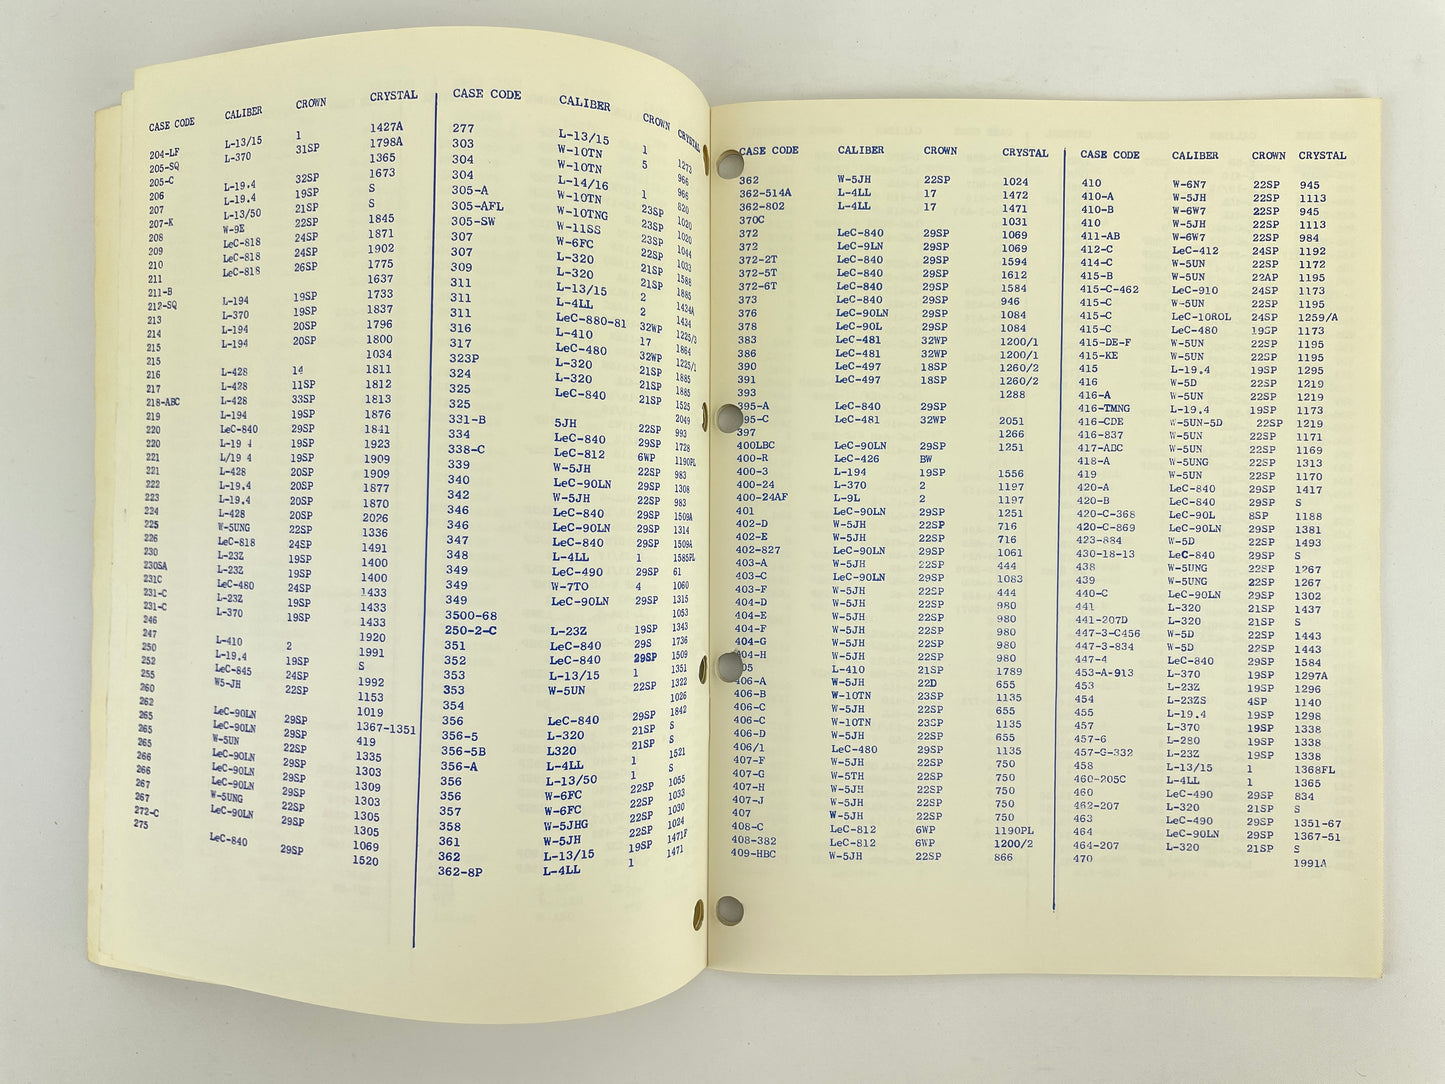 CASE CODE CALIBER CROWN CRYSTAL
204-LF L-13/15 1 1427A
205-SQ L-370 31SP 1798A
205-C 1365
206 L-19.4 32SP 1673
207 L-19.4 19SP S
207-K L-13/50 21SP S
208 W-9E 22SP 1845
209 LeC-818 24SP 1871
210 LeC-818 24SP 1902
211 LeC-818 26SP 1775
211-B 1637
212-SQ L-194 19SP 1733
213 L-370 19SP 1837
214 L-194 20SP 1796
215 L-194 20SP 1800
215 1034
216 L-428 14 1811
217 L-428 11SP 1812
218-ABC L-428 33SP 1813
219 L-194 19SP 1876
220 LeC-840 29SP 1841
220 L-19 4 19SP 1923
221 L/19 4 19SP 1909
221 L-428 20SP 1909
222 L-19.4 20SP 1877
223 L-19.4 20SP 1870
224 L-428 20SP 2026
225 W-5UNG 22SP 1336
226 LeC-818 24SP 1491
230 L-23Z 19SP 1400
230SA L-23Z 19SP 1400
231C LeC-480 24SP 1433
231-C L-23Z 19SP 1433
231-C L-370 19SP 1433
246 1920
247 L-410 2 1991
250 L-19.4 19SP S
252 LeC845 24SP 1992
255 W5-JH 22SP 1153
260 1019
262 LeC-90LN 29SP 1367-1351
265 LeC-90LN 29SP 419
265 W-5UN 22SP 1335
265 LeC-90LN 29SP 1303
266 LeC-90LN 29SP 1309
266 LeC-90LN 29SP 1303
267 W-5UNG 22SP 1305
267 LeC-90LN 29SP 1305
272-C 1069
275 LeC-840 29SP 1520
CASE CODE CALIBER CROWN CRYSTAL
277 L-13/15 1 1273
303 W-10TN 5 966
304 W-10TN 966
304 L-14/16 1 820
305-A W-10TN 23SP 1020
305-AFL W-10TNG 23SP 1020
305-SW W-11SS 23SP 1044
307 W-6FC 22SP 1033
307 L-320 21SP 1588
309 L-320 21SP 1885
311 L-13/15 2 1424A
311 L-4LL 2 1434
311 LeC-880-81 32WP 1225/3
316 L-410 17 1864
317 LeC-480 32WP 1225/1
323P L-320 21SP 1885
324 L-320 21SP 1885
325 LeC-840 21SP 1525
325 2049
331-B 5JH 22SP 993
334 LeC-840 29SP 1728
338-C LeC-812 6WP 1190PL
339 W-5JH 22SP 983
340 LeC-90LN 29SP 1308
342 W-5JH 22SP 983
346 LeC-840 29SP 1509A
346 LeC-90LN 29SP 1314
347 LeC-840 29SP 1509A
348 L-4LL 1 1585PL
349 LeC-490 29SP 61
349 W-7TO 4 1060
349 LeC-90LN 29SP 1315
3500-68 1053
250-2-C L-23Z 19SP 1343
351 LeC-840 29S 1736
352 LeC-840 29SP 1509
353 L-13/15 1 1351
353 W-5UN 22SP 1322
354 1026
356 LeC-840 29SP 1842
356-5 L-320 21SP S
356-5B L320 21SP S
356-A L-4LL 1 1521
356 L-13/50 1 S
356 W-6FC 22SP 1055
357 W-6FC 22SP 1033
358 W-5JHG 22SP 1030
361 W-5JH 22SP 1024
362 L-13/15 19SP 1471F
362-8P L-4LL 1 1471
CASE CODE CALIBER CROWN CRYSTAL
362 W-5JH 22SP 1024
362-514A L-4LL 17 1472
362-802 L-4LL 17 1471
370C 1031
372 LeC-840 29SP 1069
372 LeC-9LN 29SP 1069
372-2T LeC-840 29SP 1594
372-5T LeC-840 29SP 1612
372-6T LeC-840 29SP 1584
373 LeC-840 29SP 946
376 LeC-90LN 29SP 1084
378 LeC-90L 29SP 1084
383 LeC-481 32WP 1200/1
386 LeC-481 32WP 1200/1
390 LeC-497 18SP 1260/2
391 LeC-497 18SP 1260/2
393 1288
395-A LeC-840 29SP
395-C LeC-481 32WP 2051
397 1266
400LBC LeC-90LN 29SP 1251
400-R LeC-426 BW
400-3 L-194 19SP 1556
400-24 L-370 2 1197
400-24AF L-9L 2 1197
401 LeC-90LN 29SP 1251
402-D W-5JH 22SP 716
402-E W-5JH 22SP 716
402-827 LeC-90LN 29SP 1061
403-A W-5JH 22SP 444
403-C LeC-90LN 29SP 1083
403-F W-5JH 22SP 444
404-D W-5JH 22SP 980
404-E W-5JH 22SP 980
404-F W-5JH 22SP 980
404-G W-5JH 22SP 980
404-H W-5JH 22SP 980
405 L-410 21SP 1789
406-A W-5JH 22D 655
406-B W-10TN 23SP 1135
406-C W-5JH 22SP 655
406-C W-10TN 23SP 1135
406-D W-5JH 22SP 655
406/1 LeC-480 29SP 1135
407-F W-5JH 22SP 750
407-G W-5TH 22SP 750
407-H W-5JH 22SP 750
407-J W-5JH 22SP 750
407 W-5JH 22SP 750
408-C LeC-812 6WP 1190PL
408-382 LeC-812 6WP 1200/2
409-HBC W-5JH 22SP 866
CASE CODE CALIBER CROWN CRYSTAL
410 W-6N7 22SP 945
410-A W-5JH 22SP 1113
410-B W-6W7 22SP 945
410 W-5JH 22SP 1113
411-AB W-6W7 22SP 984
412-C LeC-412 24SP 1192
414-C W-5UN 22SP 1172
415-B W-5UN 22AP 1195
415-C-462 LeC-910 24SP 1173
415-C W-5UN 22SP 1195
415-C LeC-10ROL 24SP 1259/A
415-C LeC-480 19SP 1173
415-DE-F W-5UN 22SP 1195
415-KE W-5UN 22SP 1195
415 L-19.4 19SP 1295
416 W-5D 22SP 1219
416-A W-5UN 22SP 1219
416-TMNG L-19.4 19SP 1173
416-CDE W-5UN-5D 22SP 1219
416-837 W-5UN 22SP 1171
417-ABC W-5UN 22SP 1169
418-A W-5UNG 22SP 1313
419 W-5UN 22SP 1170
420-A LeC-840 29SP 1417
420-B LeC-840 29SP S
420-C-368 LeC-90L 8SP 1188
420-C-869 LeC-90LN 29SP 1381
423-884 W-5D 22SP 1493
430-18-13 LeC-840 29SP S
438 W-5UNG 22SP 1267
439 W-5UNG 22SP 1267
440-C LeC-90LN 29SP 1302
441 L-320 21SP 1437
441-207D L-320 21SP S
447-3-C456 W-5D 22SP 1443
447-3-834 W-5D 22SP 1443
447-4 LeC-840 29SP 1584
453-A-913 L-370 19SP 1297A
453 L-23Z 19SP 1296
454 L-23ZS 4SP 1140
455 L-19.4 19SP 1298
457 L-370 19SP 1338
457-6 L-280 19SP 1338
457-G-332 L-23Z 19SP 1338
458 L-13/15 1 1368FL
460-205C L-4LL 1 1365
460 LeC-490 29SP 834
462-207 L-320 21SP S
463 LeC-490 29SP 1351-67
464 LeC-90LN 29SP 1367-51
464-207 L-320 21SP S
470 1991A